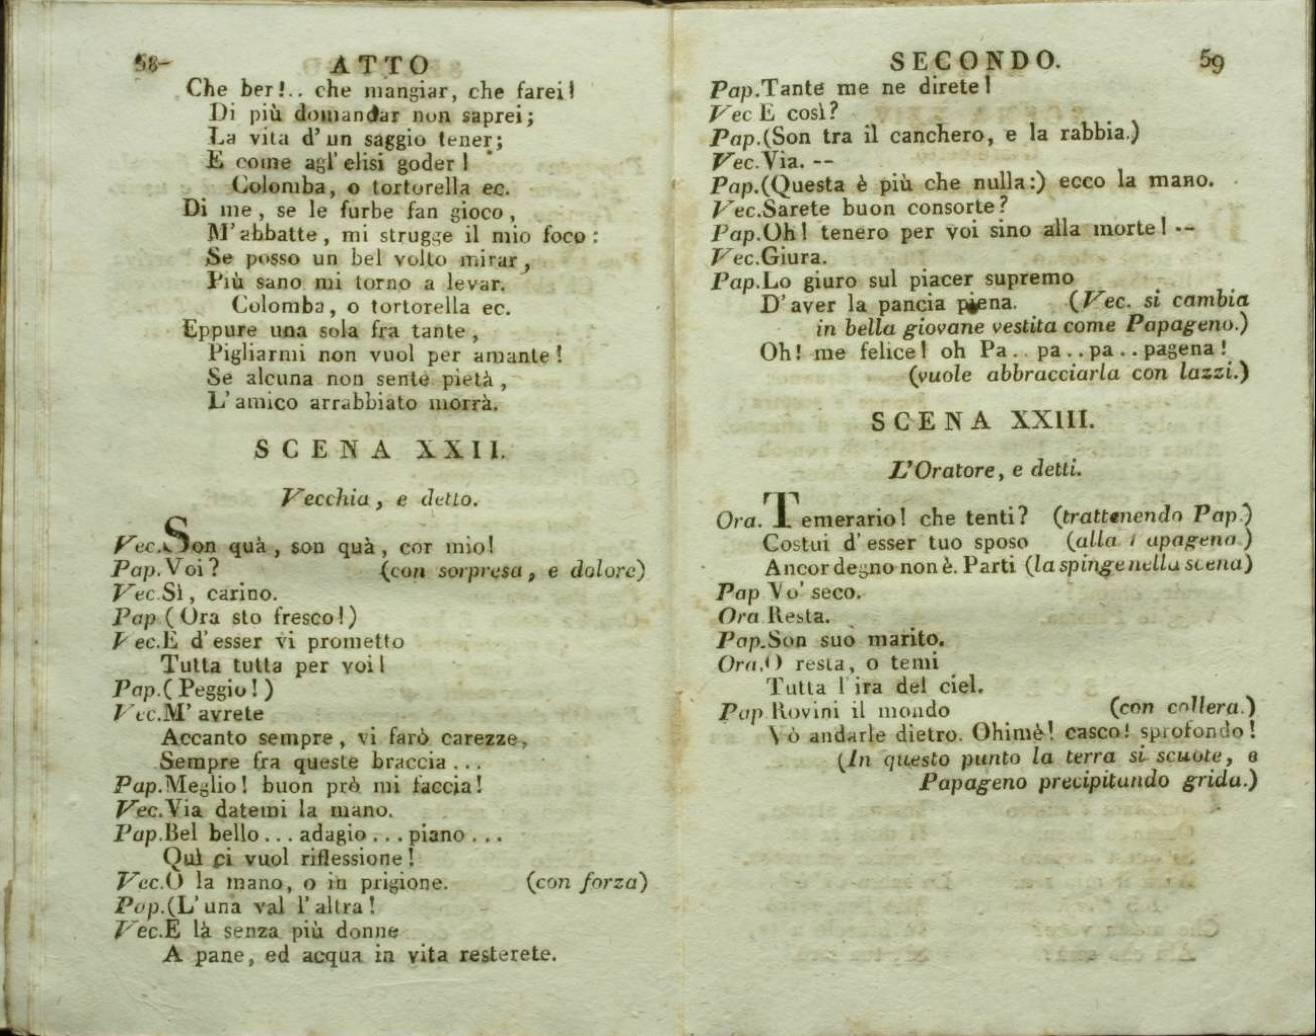 58
ATTO
Che ber!.. che mangiar, che farei!
Di più domandar non saprei;
La vita d' un saggio tener;
E come agl' elisi goder!
Colomba, o tortorella ec.
Di me, se le furbe fan gioco,
M'abbatte, mi strugge il mio foco:
Se posso un bel volto mirar,
Più sano mi torno a levar.
Colomba, o tortorella ec.
Eppure una sola fra tante,
Pigliarmi non vuol per amante!
Se alcuna non sente pietà,
L'amico arrabbiato morrà.
SCENA XXII.
Vecchia, e detto.
Vec. Son quà, son quà, cor mio!
Pap. Voi? (con sorpresa, e dolore)
Vec. Sì, carino.
Pap (Ora sto fresco!)
Vec. E d'esser vi prometto
Tutta tutta per voi!
Pap. (Peggio!)
Vec. M' avrete
Accanto sempre, vi farò carezze,
Sempre fra queste braccia ...
Pap. Meglio! buon prò mi faccia!
Vec. Via datemi la mano.
Pap. Bel bello... adagio... piano...
Quì ci vuol riflessione!
Vec. O la mano, o in prigione. (con forza)
Pap. (L'una val l'altra!
Vec. E là senza più donne
A pane, ed acqua in vita resterete.
SECONDO. 59
Pap. Tante me ne direte!
Vec E così?
Pap. (Son tra il canchero, e la rabbia.)
Vec. Via. --
Pap. (Questa è più che nulla:) ecco la mano.
Vec. Sarete buon consorte?
Pap. Oh! tenero per voi sino alla morte! --
Vec. Giura.
Pap. Lo giuro sul piacer supremo
D'aver la pancia piena. (Vec. si cambia
in bella giovane vestita come Papageno.)
Oh! me felice! oh Pa.. pa.. pa.. pagena!
(vuole abbracciarla con lazzi.)
SCENA XXIII.
L'Oratore, e detti.
Ora. Temerario! che tenti? (trattenendo Pap.)
Costui d'esser tuo sposo (alla Papagena.)
Ancor degno non è. Parti (la spinge nella scena)
Pap Vo' seco.
Ora Resta.
Pap. Son suo marito.
Ora. O resta, o temi
Tutta l'ira del ciel.
Pap Rovini il mondo (con collera.)
Vò andarle dietro. Ohimè! casco! sprofondo!
(In questo punto la terra si scuote, e
Papageno precipitando grida.)